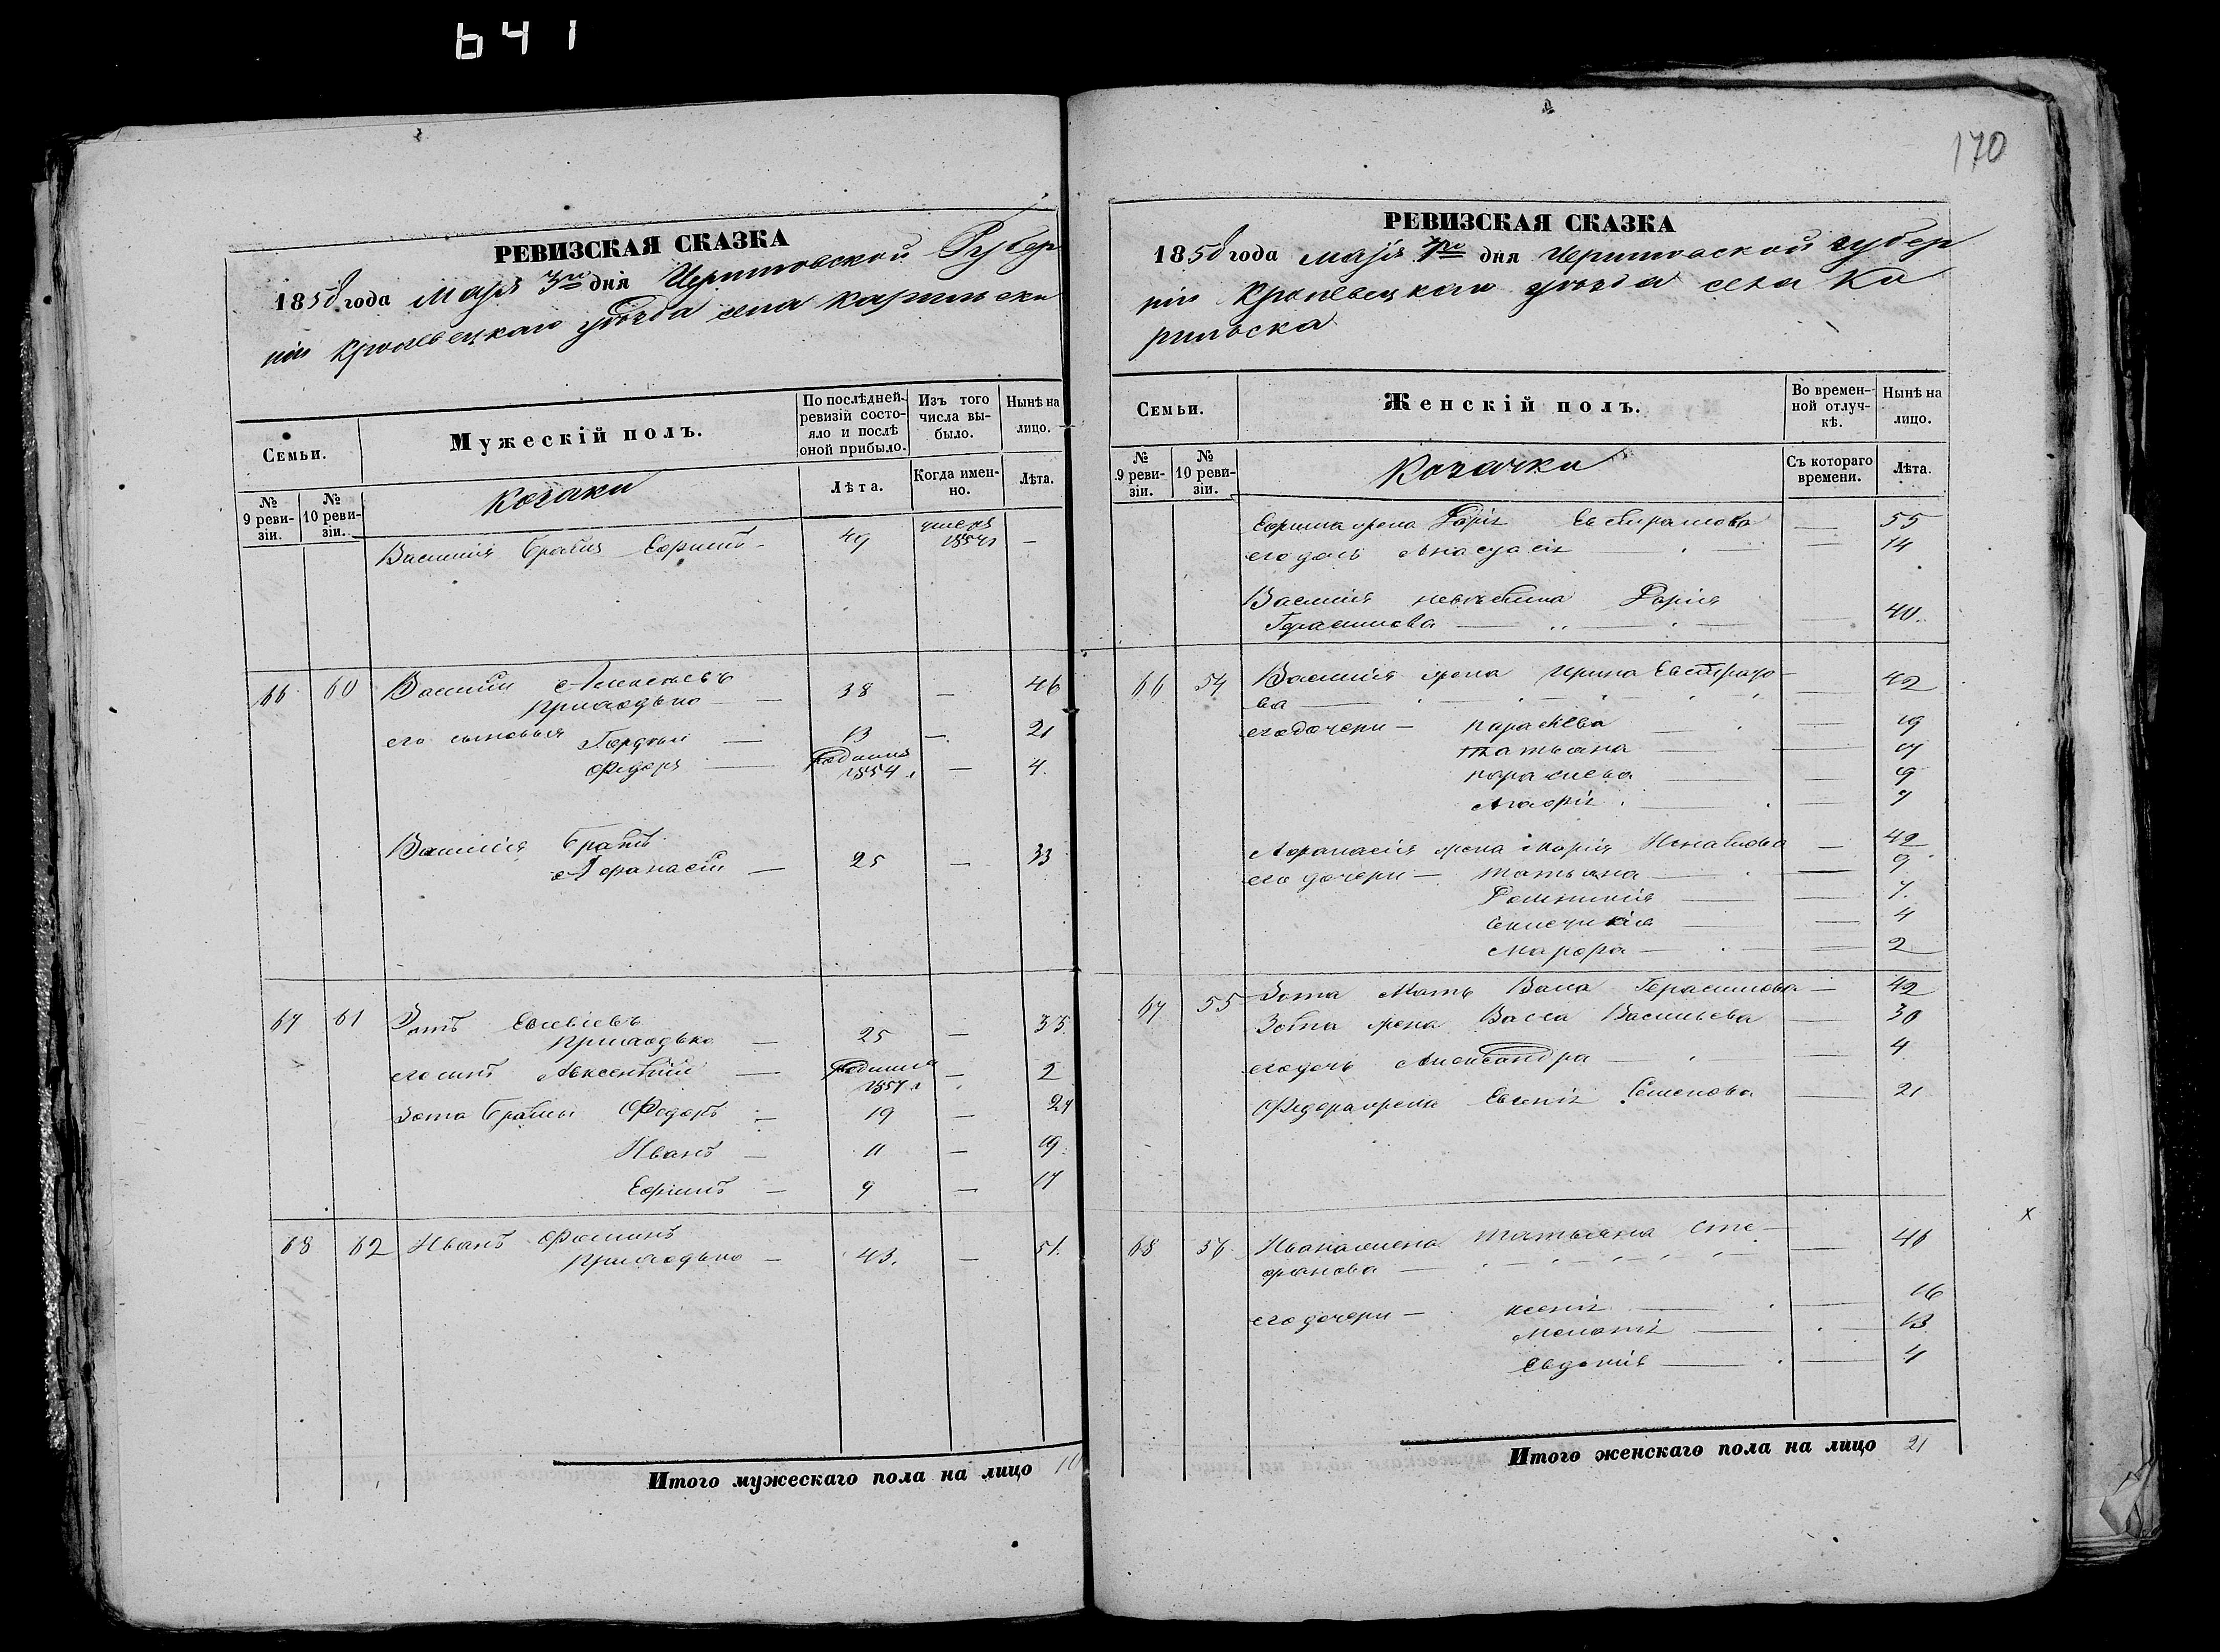 641
170
РЕВИЗСКАЯ СКАЗКА
1858 года Маія 7го дня Черниговской Губер
ніи Кролевецкаго уѣзда села Карильска
Семьи.
Мужескій полъ.
По послѣдней ревизіи состояло и послѣ оной прибыло.
Изъ того числа выбыло.
Нынѣ на лицо.
№ 9 ревизіи.
№ 10 ревизіи.
Козаки
Лѣта.
Когда именно.
Лѣта.
Василія братъ Ефимъ 49 умеръ —
66 60 Василій Алексѣевъ
Приходько — 38 — 46
его сыновья Гордѣй — 13 — 21
Федоръ — родился
1854 — 4
Василія братъ
Афанасій — 25 — 33
67 61 Зотъ Евсѣевъ
Приходько — 25 — 33
его сынъ Авксентій — родился
1857 — 2
Зота братья Федоръ — 19 — 27
Иванъ — 11 — 19
Ефимъ — 9 — 17
68 62 Иванъ Фоминъ
Приходько — 43. — 51.
Итого мужескаго пола на лицо 10
РЕВИЗСКАЯ СКАЗКА
1858 года Маія 7го дня Черниговской губер
ніи Кролевецкаго уѣзда села Ка
рильска
Семьи.
Женскій полъ.
Во временной отлучкѣ.
Нынѣ на лицо.
№ 9 ревизіи.
№ 10 ревизіи.
Козачки
Съ котораго времени.
Лѣта.
Ефима жена Дарія — 55
его дочь Анастасія — 14
Василія невѣстка Дарія
Герасимова — 40.
66 54 Василія жена Ирина Евстрафо
ва — 42
его дочери — Параскева — 19
Татьяна — 17
Параскева — 9
Агафія — 7
Афанасія жена Марія Игнатова — 42
его дочери — Татьяна — 9
Домникія — 7.
4
Марфа — 2
67 55 Зота мать Васа Герасимова — 42
Зота жена Васса Васильева — 30
его дочь Александра — 4
Федора жена Евгенія Семенова — 21
68 56 Ивана жена Татьяна Сте
фанова — 46
его дочери — Ксенія — 16
Меланія — 13
Евдокія — 4
Итого женскаго пола на лицо 21